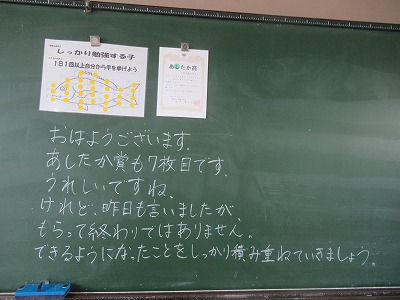 しっかり勉強する子
1日1回以上自分から手を挙げよう
あしたか賞
おはようございます。
あしたか賞も7枚目です。
うれしいですね。
けれど、昨日も言いましたが、
もらって終わりではありません。
できるようになったことをしっかり積み重ねていきましょう。